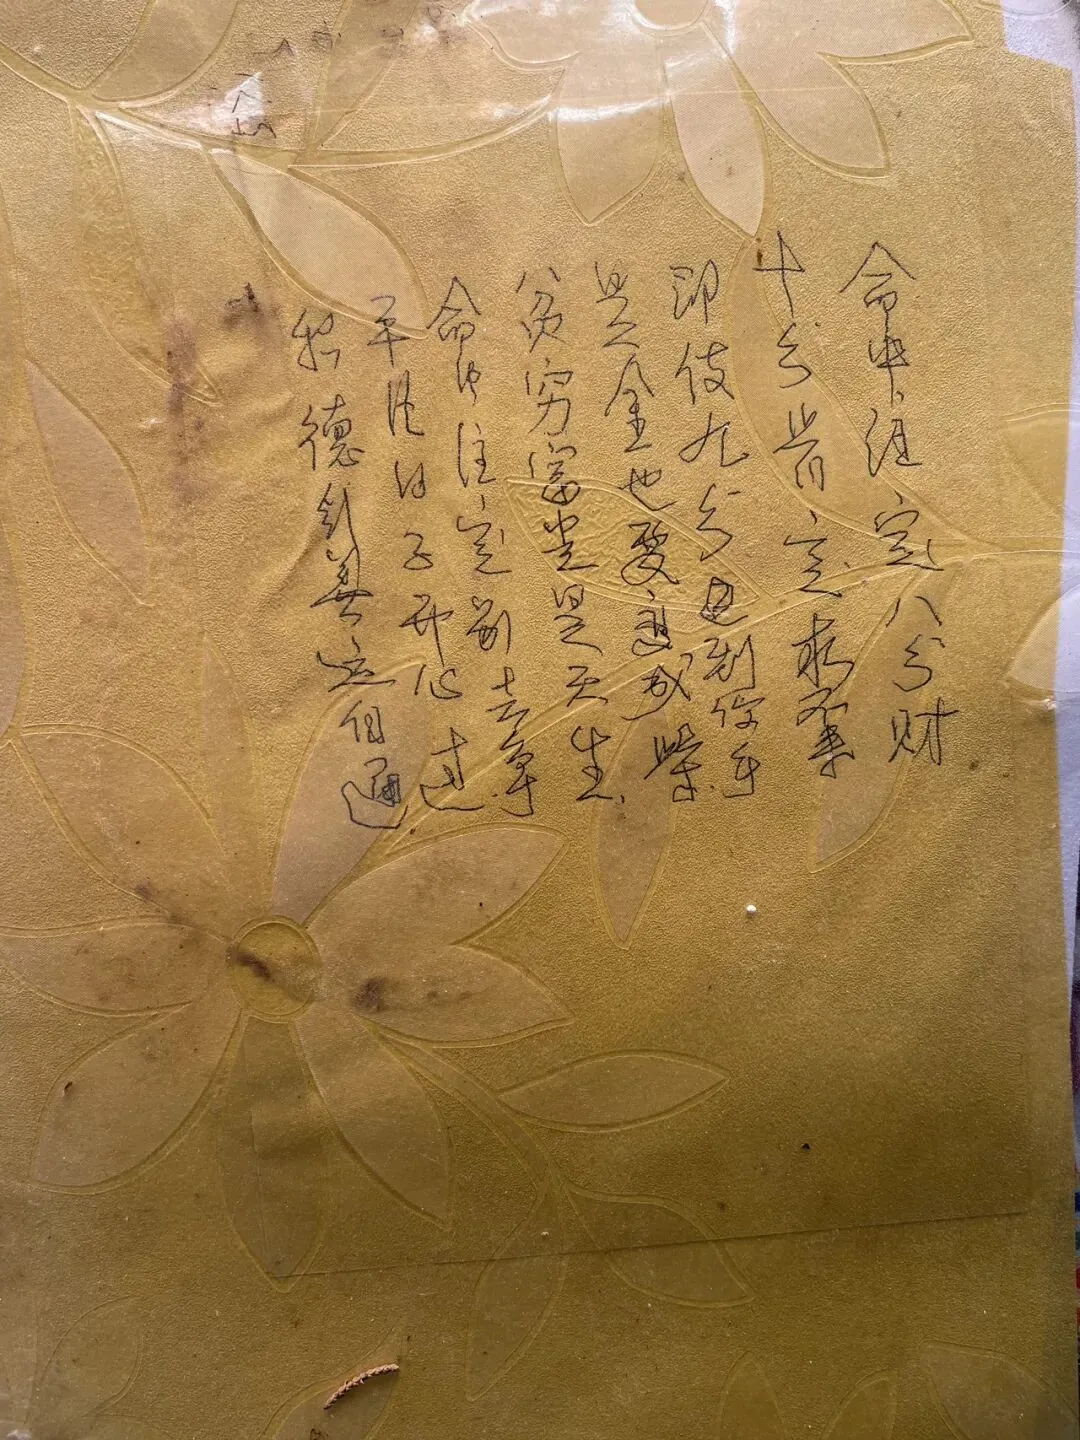 命中注定八分财
十分肯定求不来
即使九分到你手
是金也要变成柴
贫穷富贵是天生
命中注定别去争
平淡日子开心过
积德行善运自通